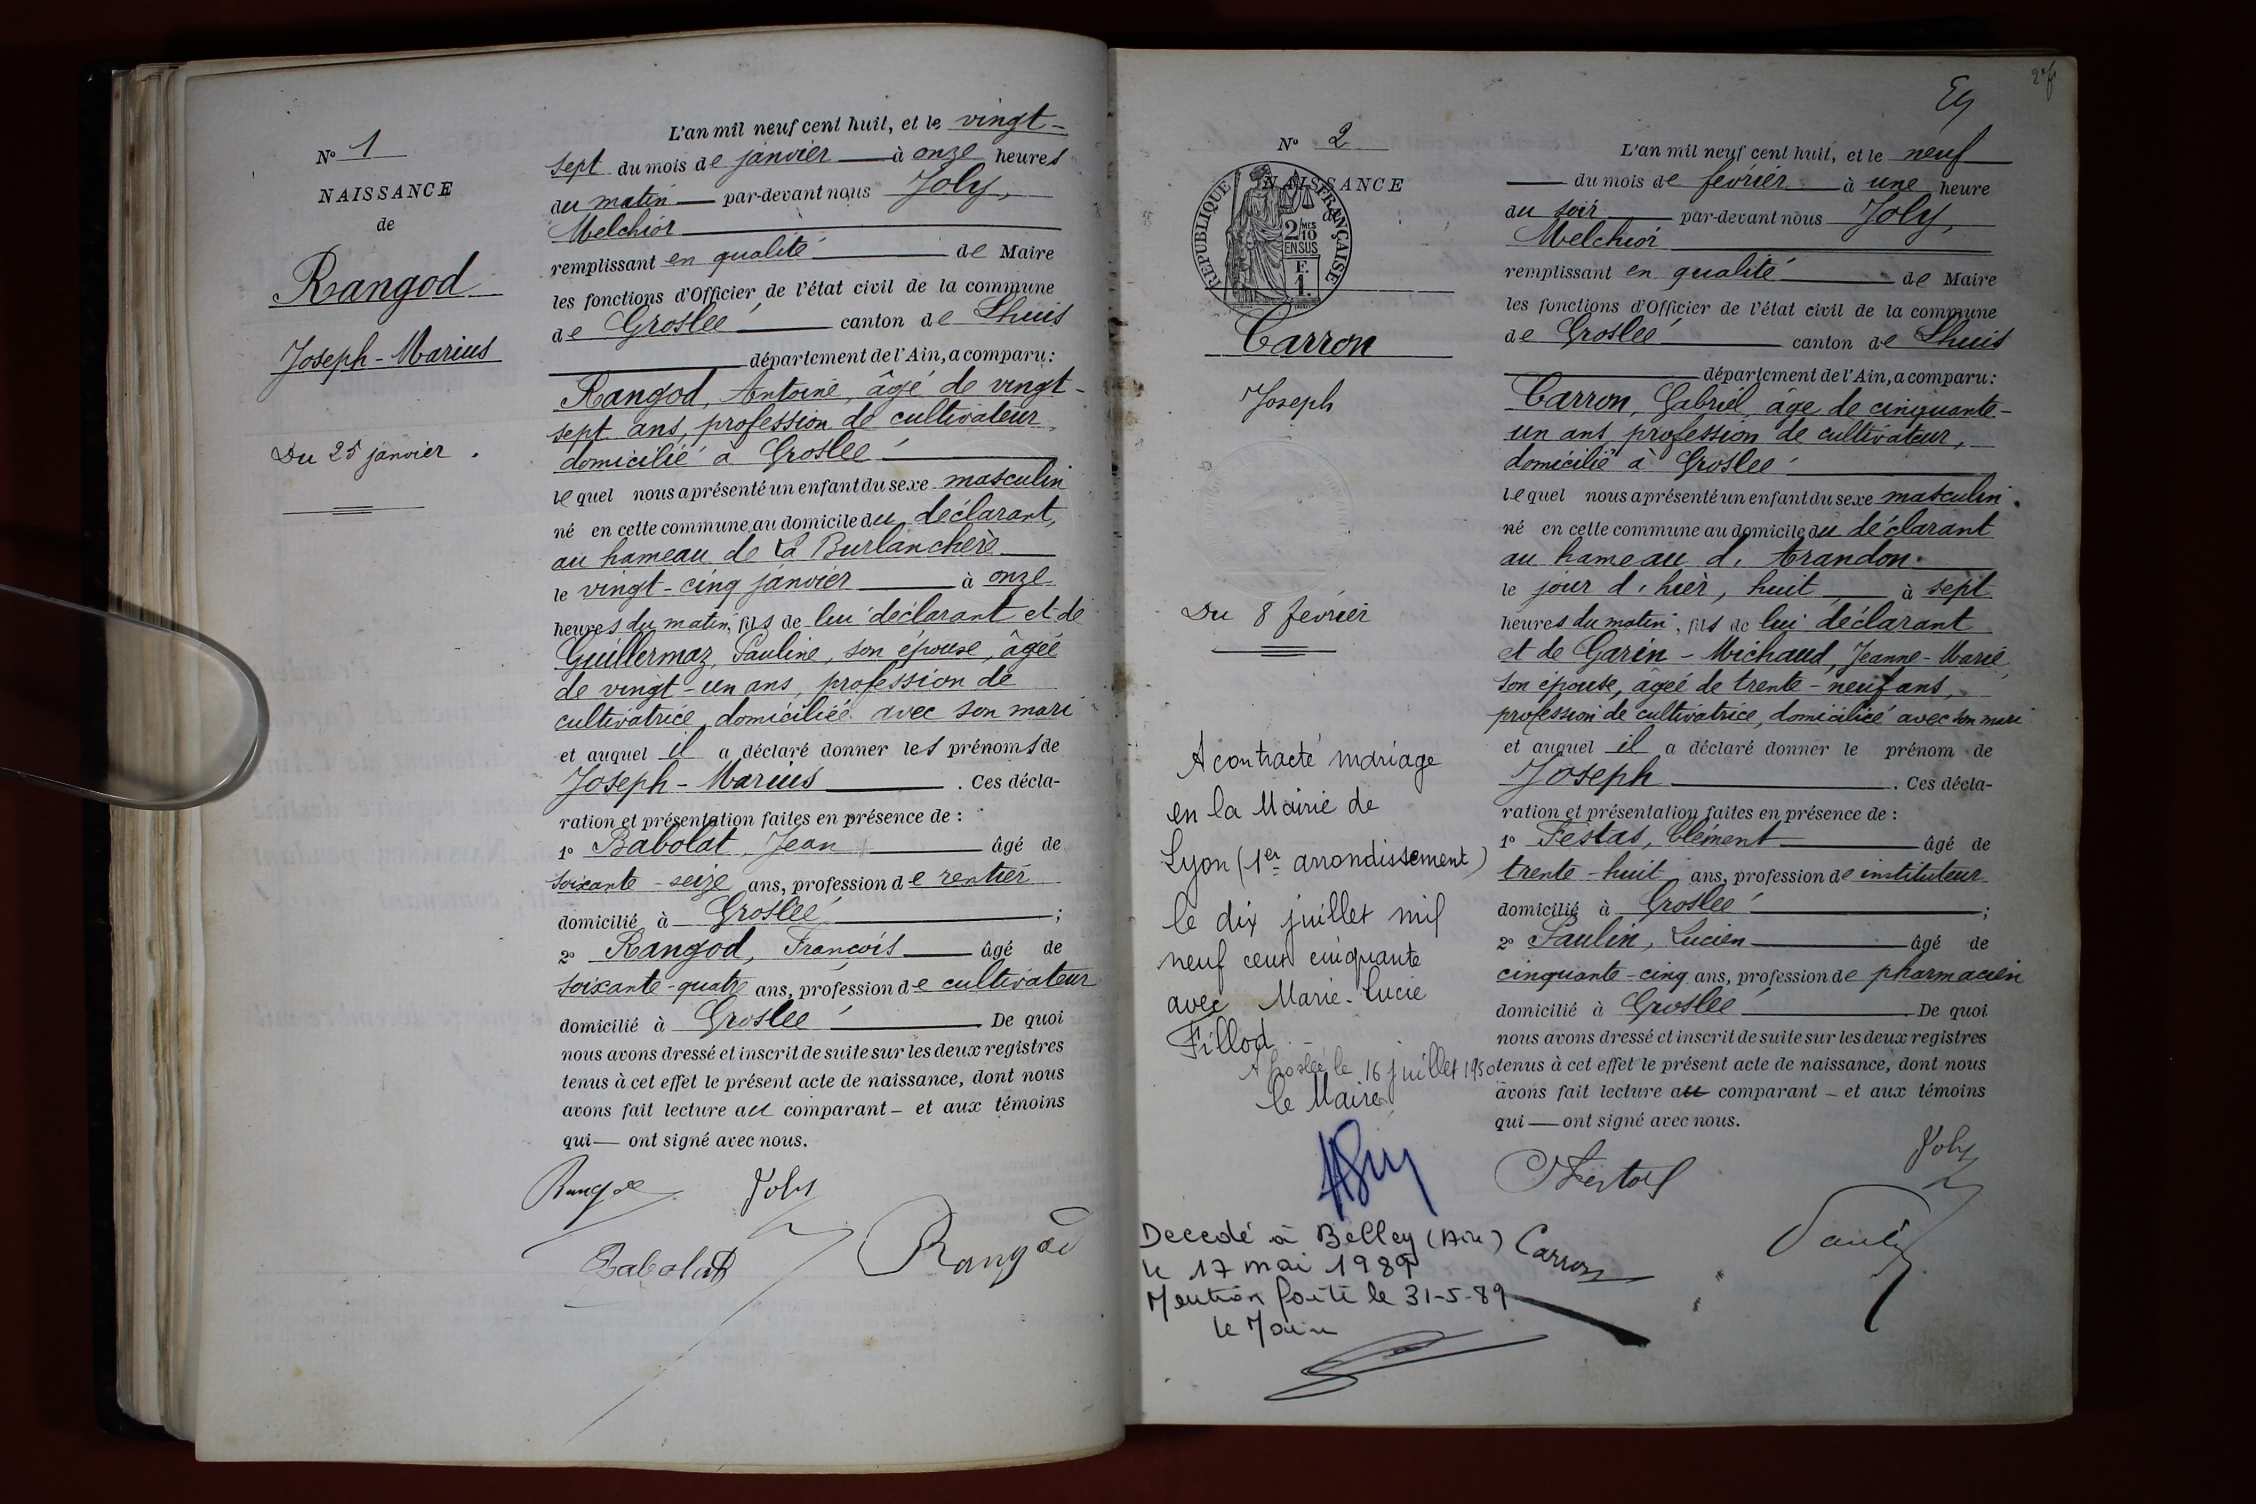 N° 1
NAISSANCE
de
Rangod
Joseph-Marius
Du 25 janvier.
L'an mil neuf cent huit, et le vingt-
sept du mois de janvier à onze heures
du matin par-devant nous Joly,
Melchior
remplissant en qualité de Maire
les fonctions d'Officier de l'état civil de la commune
de Groslée canton de Lhuis
département de l'Ain, a comparu:
Rangod, Antoine, âgé de vingt-
sept ans, profession de cultivateur,
domicilié à Groslée
lequel nous a présenté un enfant du sexe masculin
né en cette commune au domicile du déclarant,
au hameau de La Burlanchère
le vingt-cinq janvier à onze
heures du matin, fils de lui déclarant et de
Guillermaz, Pauline, son épouse, âgée
de vingt-un ans, profession de
cultivatrice, domiciliée avec son mari
et auquel il a déclaré donner les prénoms de
Joseph-Marius. Ces décla-
ration et présentation faites en présence de :
1° Babolat, Jean âgé de
soixante-seize ans, profession de rentier
domicilié à Groslée ;
2° Rangod, François âgé de
soixante-quatre ans, profession de cultivateur
domicilié à Groslée De quoi
nous avons dressé et inscrit de suite sur les deux registres
tenus à cet effet le présent acte de naissance, dont nous
avons fait lecture au comparant – et aux témoins
qui — ont signé avec nous.
Rangod Joly
Babolat Rangod
Ey
N° 2
NAISSANCE
de
RÉPUBLIQUE FRANÇAISE
2/10 MES
EN SUS
F.
1.
Carron
Joseph
Du 8 février
A contracté mariage
en la Mairie de
Lyon (1er arrondissement)
le dix juillet mil
neuf cent cinquante
avec Marie-Lucie
Fillod.
A Groslée le 16 juillet 1950
le Maire
Decedé à Belley (Ain)
le 17 mai 1989
Mention portée le 31-5-89
le Maire
L'an mil neuf cent huit, et le neuf
du mois de février à une heure
du soir par-devant nous Joly,
Melchior
remplissant en qualité de Maire
les fonctions d'Officier de l'état civil de la commune
de Groslée canton de Lhuis
département de l'Ain, a comparu:
Carron, Gabriel, âgé de cinquante-
un ans, profession de cultivateur,
domicilié à Groslée
lequel nous a présenté un enfant du sexe masculin.
né en cette commune au domicile du déclarant
au hameau d'Arandon.
le jour d'hier, huit, à sept
heures du matin, fils de lui déclarant
et de Garin-Michaud, Jeanne-Marie,
son épouse, âgée de trente-neuf ans,
profession de cultivatrice, domiciliée avec son mari
et auquel il a déclaré donner le prénom de
Joseph. Ces décla-
ration et présentation faites en présence de :
1° Festas, Clément âgé de
trente-huit ans, profession de instituteur
domicilié à Groslée ;
2° Paulin, Lucien âgé de
cinquante-cinq ans, profession de pharmacien
domicilié à Groslée De quoi
nous avons dressé et inscrit de suite sur les deux registres
tenus à cet effet le présent acte de naissance, dont nous
avons fait lecture au comparant – et aux témoins
qui — ont signé avec nous.
Joly
Carron Paulin